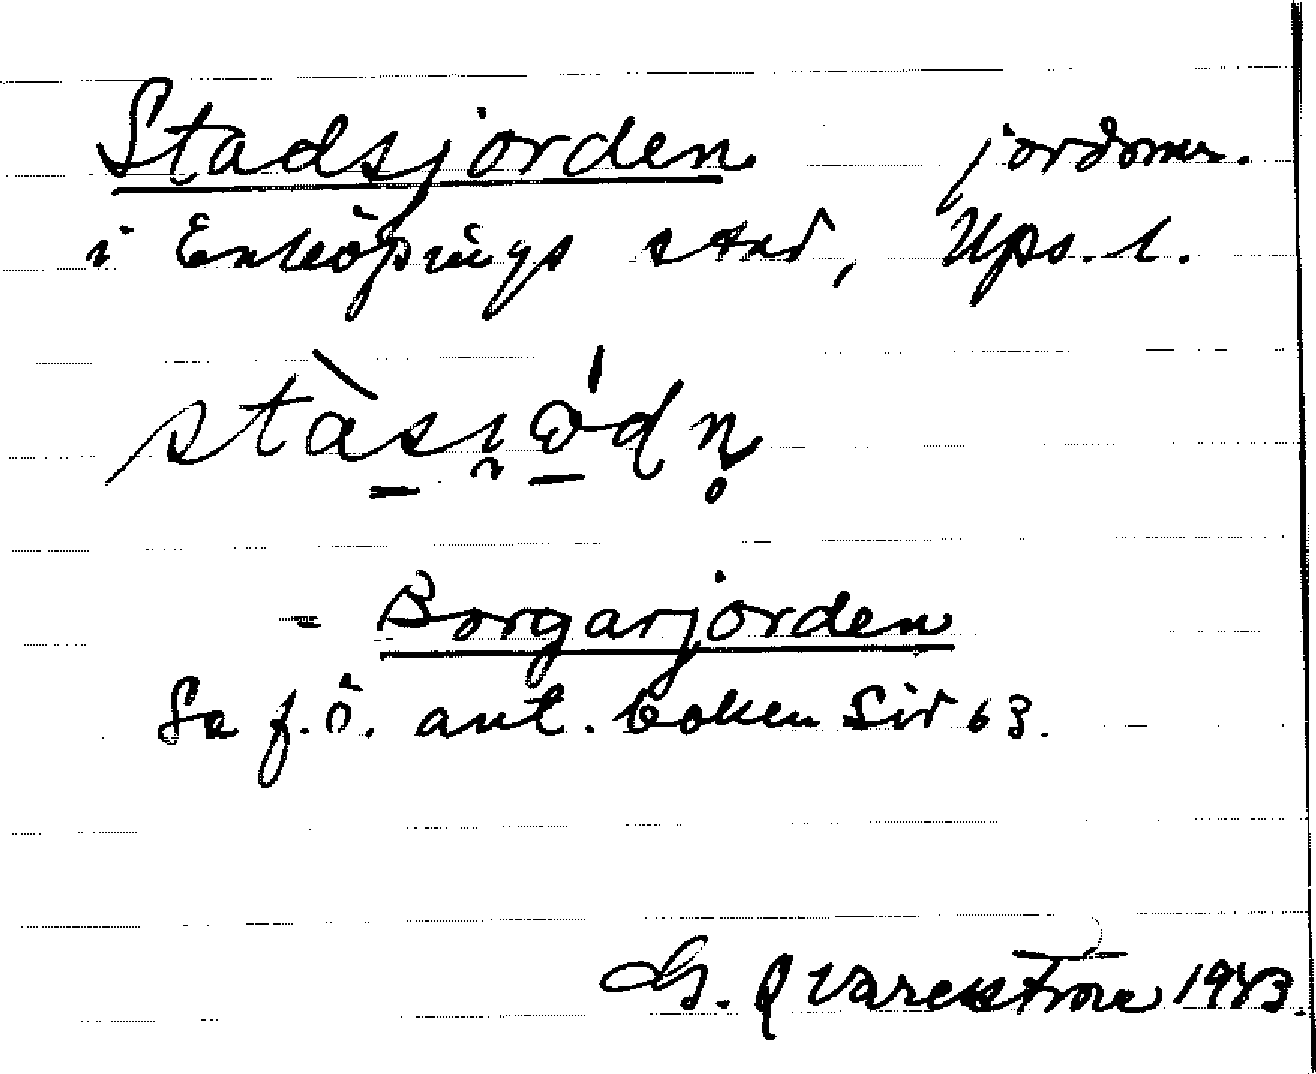 Stadsjorden jordomr.
i Enköpings stad, Ups. l.
= Borgarjorden
Se f.ö. ant. boken Sid 63.
G. Qvarnström 1943.